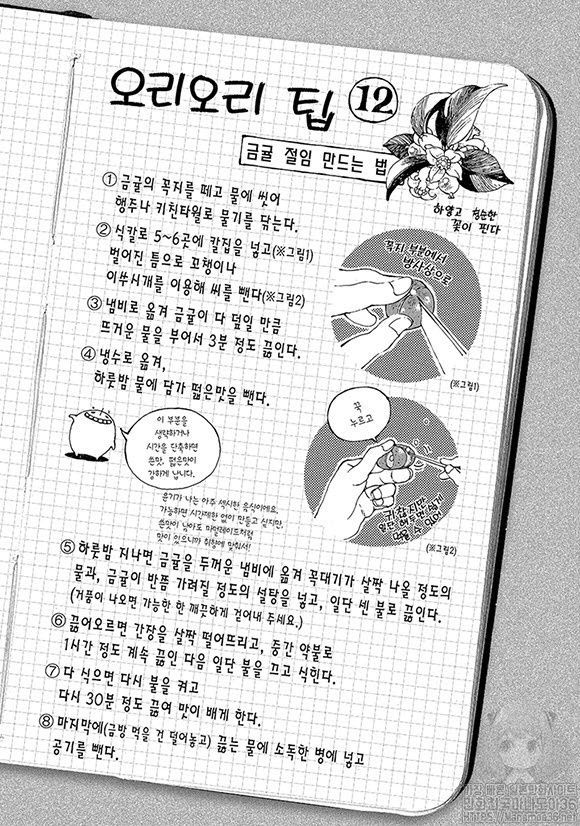 오리오리 팁 ⑫
금귤 절임 만드는 법
하얗고 청순한
꽃이 핀다
① 금귤의 꼭지를 떼고 물에 씻어
행주나 키친타월로 물기를 닦는다.
② 식칼로 5~6곳에 칼집을 넣고(※그림1)
벌어진 틈으로 꼬챙이나
이쑤시개를 이용해 씨를 뺀다(※그림2)
③ 냄비로 옮겨 금귤이 다 덮일 만큼
뜨거운 물을 부어서 3분 정도 끓인다.
④ 냉수로 옮겨,
하룻밤 물에 담가 떫은맛을 뺀다.
꼭지 부분에서
방사상으로
(※그림1)
이 부분을
생략하거나
시간을 단축하면
쓴맛, 떫은맛이
강하게 납니다.
윤기가 나는 아주 섹시한 음식이에요.
가능하면 시간제한 없이 만들고 싶지만,
쓴맛이 남아도 마멀레이드처럼
맛이 있으니까 취향에 맞춰서!
꾹
누르고
귀찮지만
일단 해두면
(※그림2)
⑤ 하룻밤 지나면 금귤을 두꺼운 냄비에 옮겨 꼭대기가 살짝 나올 정도의
물과, 금귤이 반쯤 가려질 정도의 설탕을 넣고, 일단 센 불로 끓인다.
(거품이 나오면 가능한 한 깨끗하게 걷어내 주세요.)
⑥ 끓어오르면 간장을 살짝 떨어뜨리고, 중간 약불로
1시간 정도 계속 끓인 다음 일단 불을 끄고 식힌다.
⑦ 다 식으면 다시 불을 켜고
다시 30분 정도 끓여 맛이 배게 한다.
⑧ 마지막에(금방 먹을 건 덜어놓고) 끓는 물에 소독한 병에 넣고
공기를 뺀다.
가장 빠른 일본만화사이트
만화천국마나모아36
https://Manamoa36.net